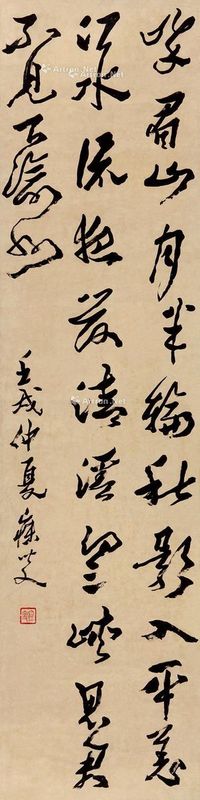 峨眉山月半輪秋影入平羌
江水流夜發清溪向三峽思君
不見下渝州
壬戌仲夏